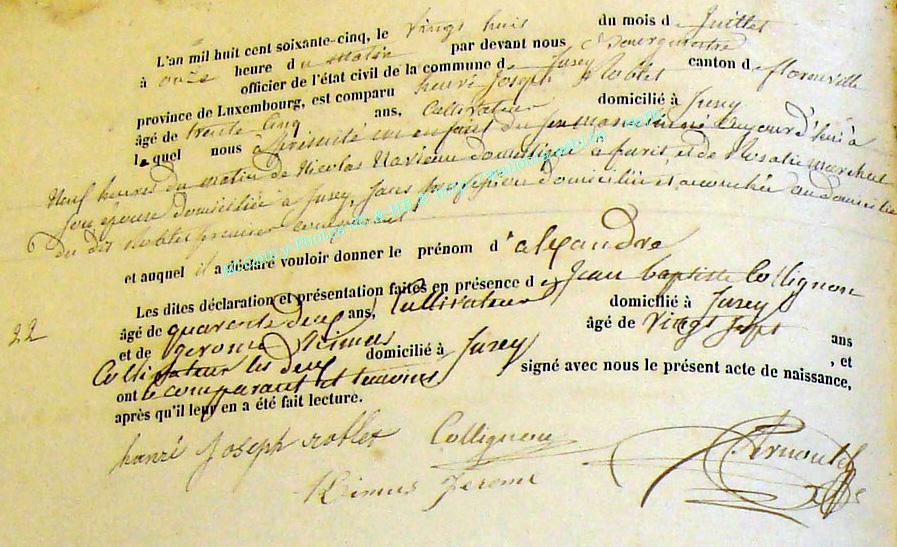 L'an mil huit cent soixante-cinq, le vingt huit du mois de Juillet
à onze heure du matin par devant nous Bourgmestre
officier de l'état civil de la commune de Jusey canton de florenville
province de Luxembourg, est comparu henri Joseph Roblet
âgé de trente cinq ans, Cultivateur domicilié à Jusey
lequel nous a présenté un enfant du sexe masculin né aujourd'hui à
Neuf heures du matin de Nicolas domicilié à et de Rosalie
son épouse domiciliée à Jusey, sans profession domiciliée et accouchée au domicile
du dit Roblet premier comparant
et auquel il a déclaré vouloir donner le prénom d'alexandre
Les dites déclaration et présentation faites en présence de Jean baptiste Collignon
22
âgé de quarante deux ans, Cultivateur domicilié à Jusey
et de gerome Rimus âgé de vingt sept ans
Cultivateur les deux domicilié à Jusey , et
ont le comparant et temoins signé avec nous le présent acte de naissance,
après qu'il leur en a été fait lecture.
hanri Joseph roblet Collignon
Rimus Jerome